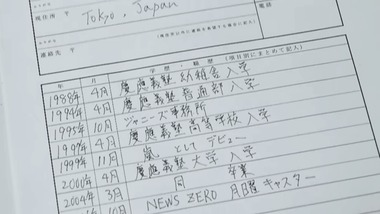 現住所 〒
Tokyo, Japan
電話
ふりがな
連絡先 〒
電話
年 月 学歴・職歴(項目別にまとめて記入)
1988年 4月 慶應義塾 幼稚舎 入学
1994年 4月 慶應義塾 普通部 入学
1995年 10月 ジャニーズ事務所
1997年 4月 慶應義塾高等学校 入学
1999年 11月 嵐 として デビュー
2000年 4月 慶應義塾 大学 入学
2004年 3月 同 卒業
10月 NEWS ZERO 月曜 キャスター